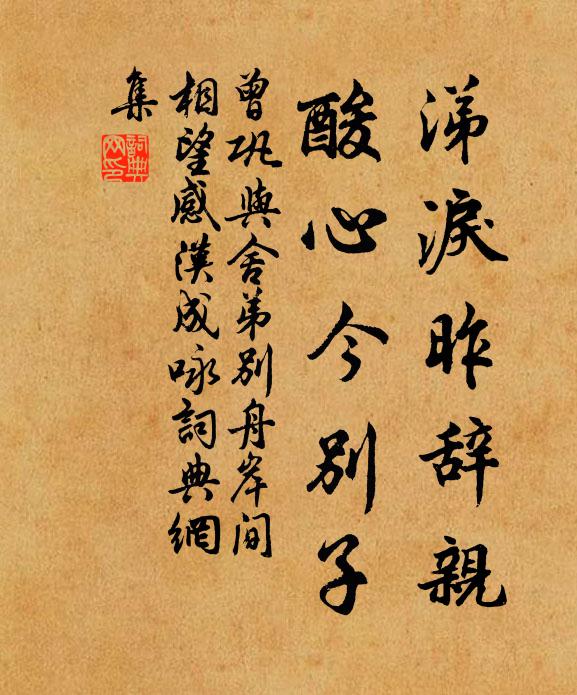 涕淚昨辞親
酸心今别子
曾巩與舍弟别舟岸间
相望感漢成咏詞典網
集
詞典
网印